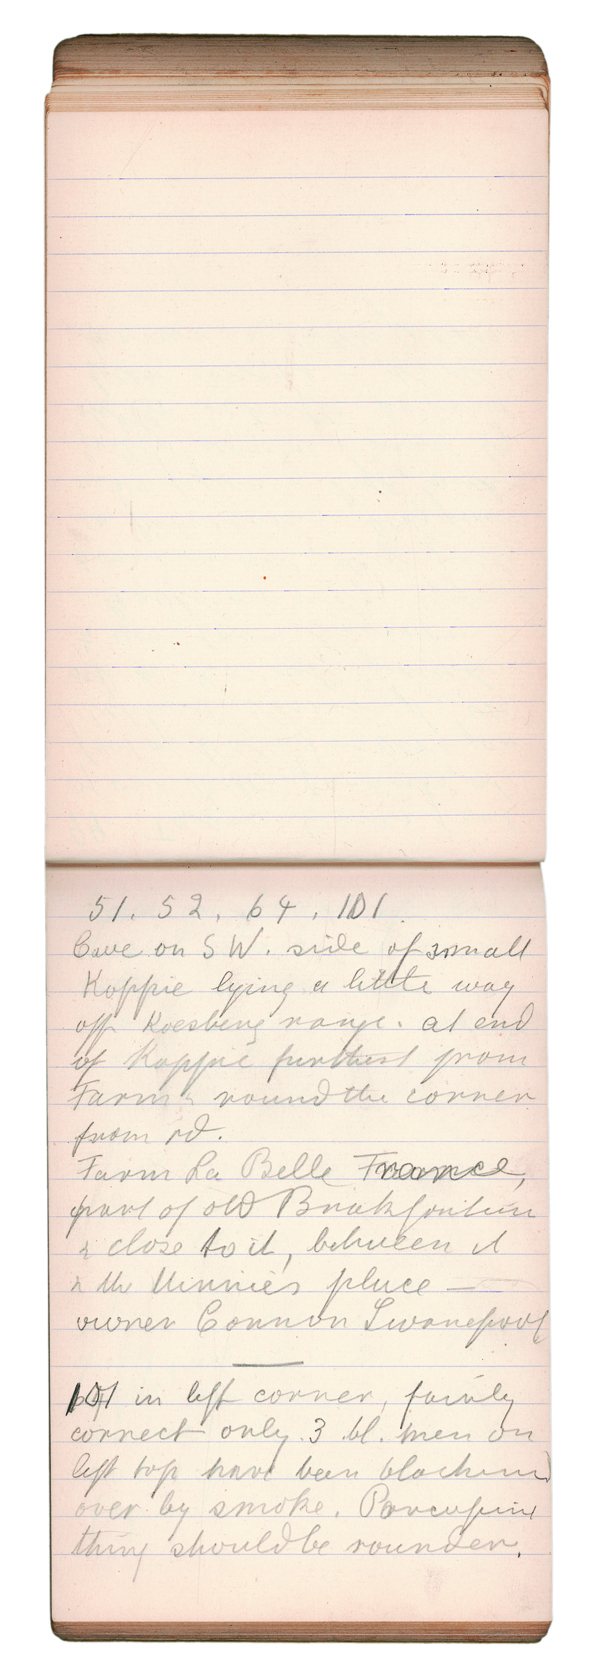 51. 52. 64. 101.
Cave on SW. side of small
Koppie lying a little way
off Koesberg range. at end
of Koppie furthest from
Farm & round the corner
from rd.
Farm La Belle France,
part of old Brakfontein
& close to it, between it
& the Minnie's place —
owner Connon Swanepoel
101 in left corner, fairly
correct only 3 bl. men on
left top have been blackened
over by smoke. Porcupine
thing should be rounder.